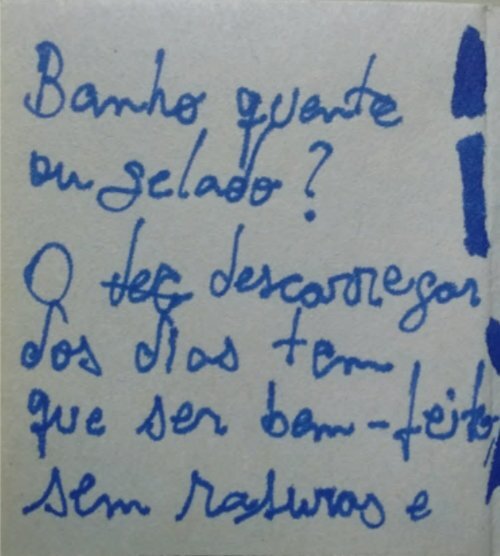 Banho quente
ou gelado?
O des descarregar
dos dias tem
que ser bem-feito
sem rasuras e